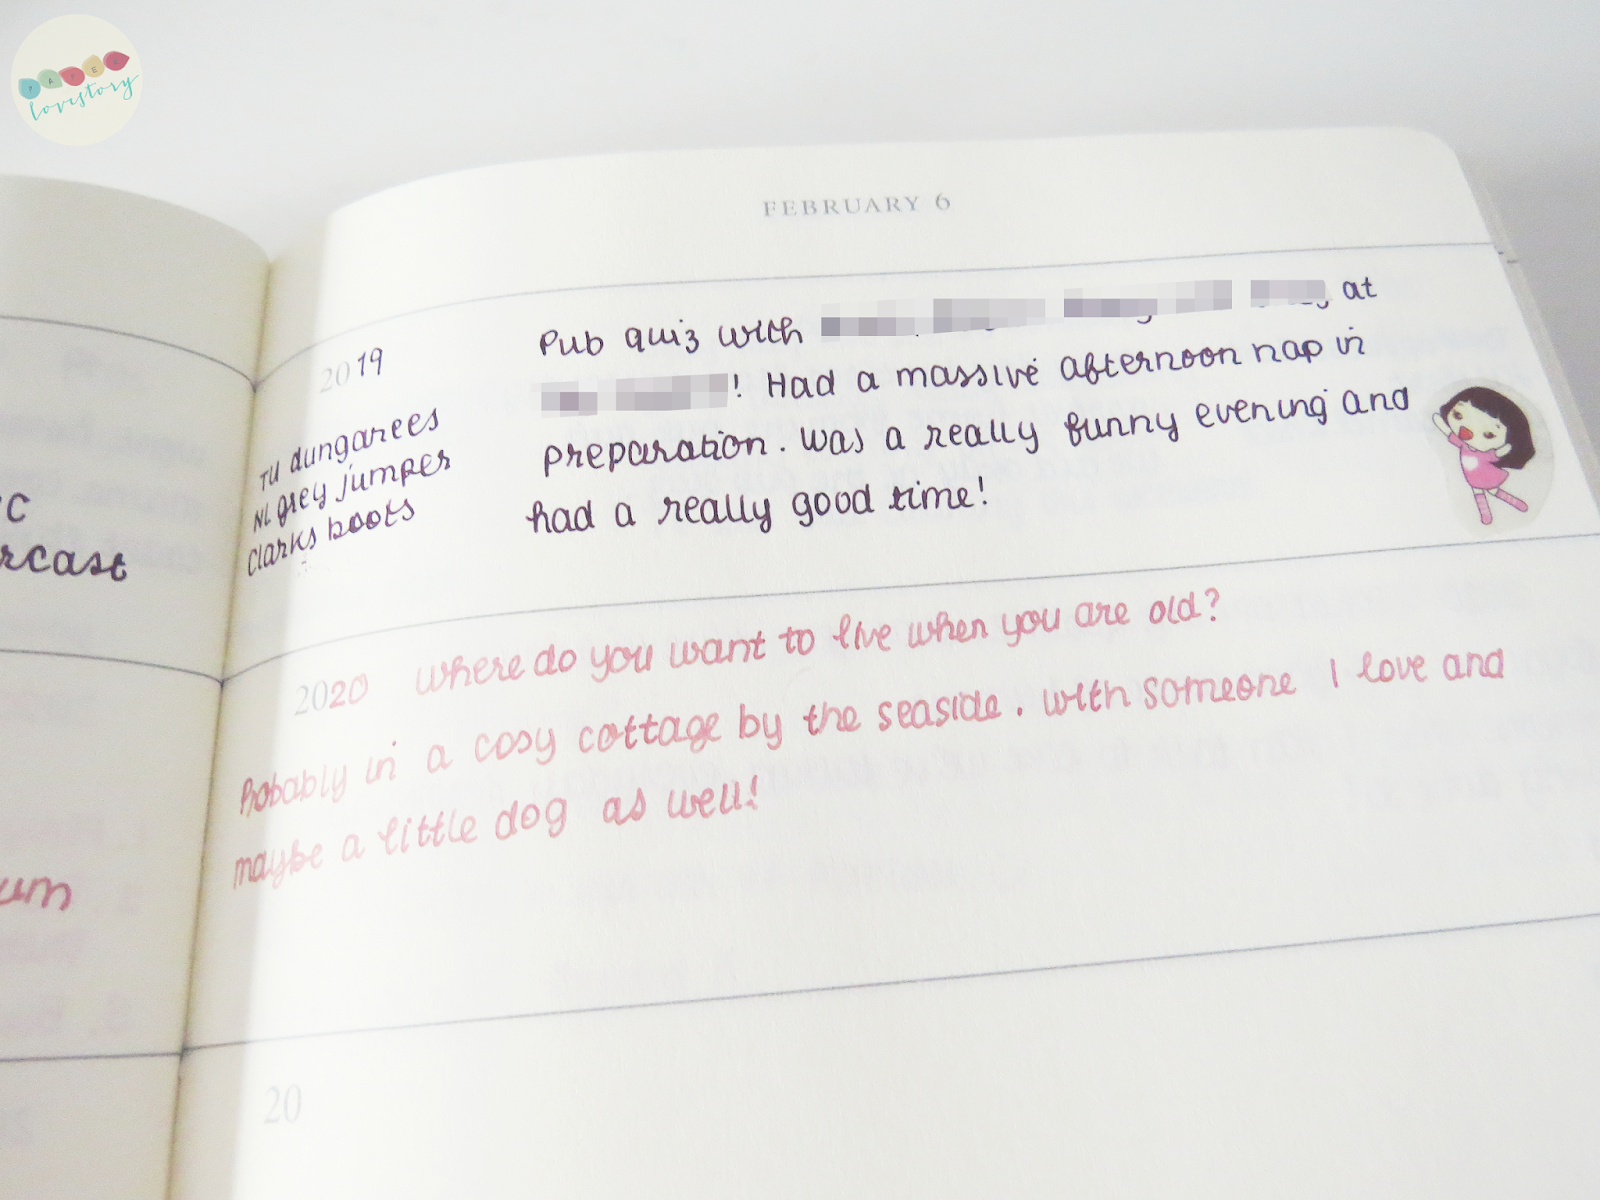 PAPER
lovestory
FEBRUARY 6
2019
TU dungarees
NL grey jumper
Clarks boots
Pub quiz with at
! Had a massive afternoon nap in
preparation. Was a really funny evening and
had a really good time!
2020 Where do you want to live when you are old?
Probably in a cosy cottage by the seaside. With someone I love and
maybe a little dog as well!
20
c
rcast
um